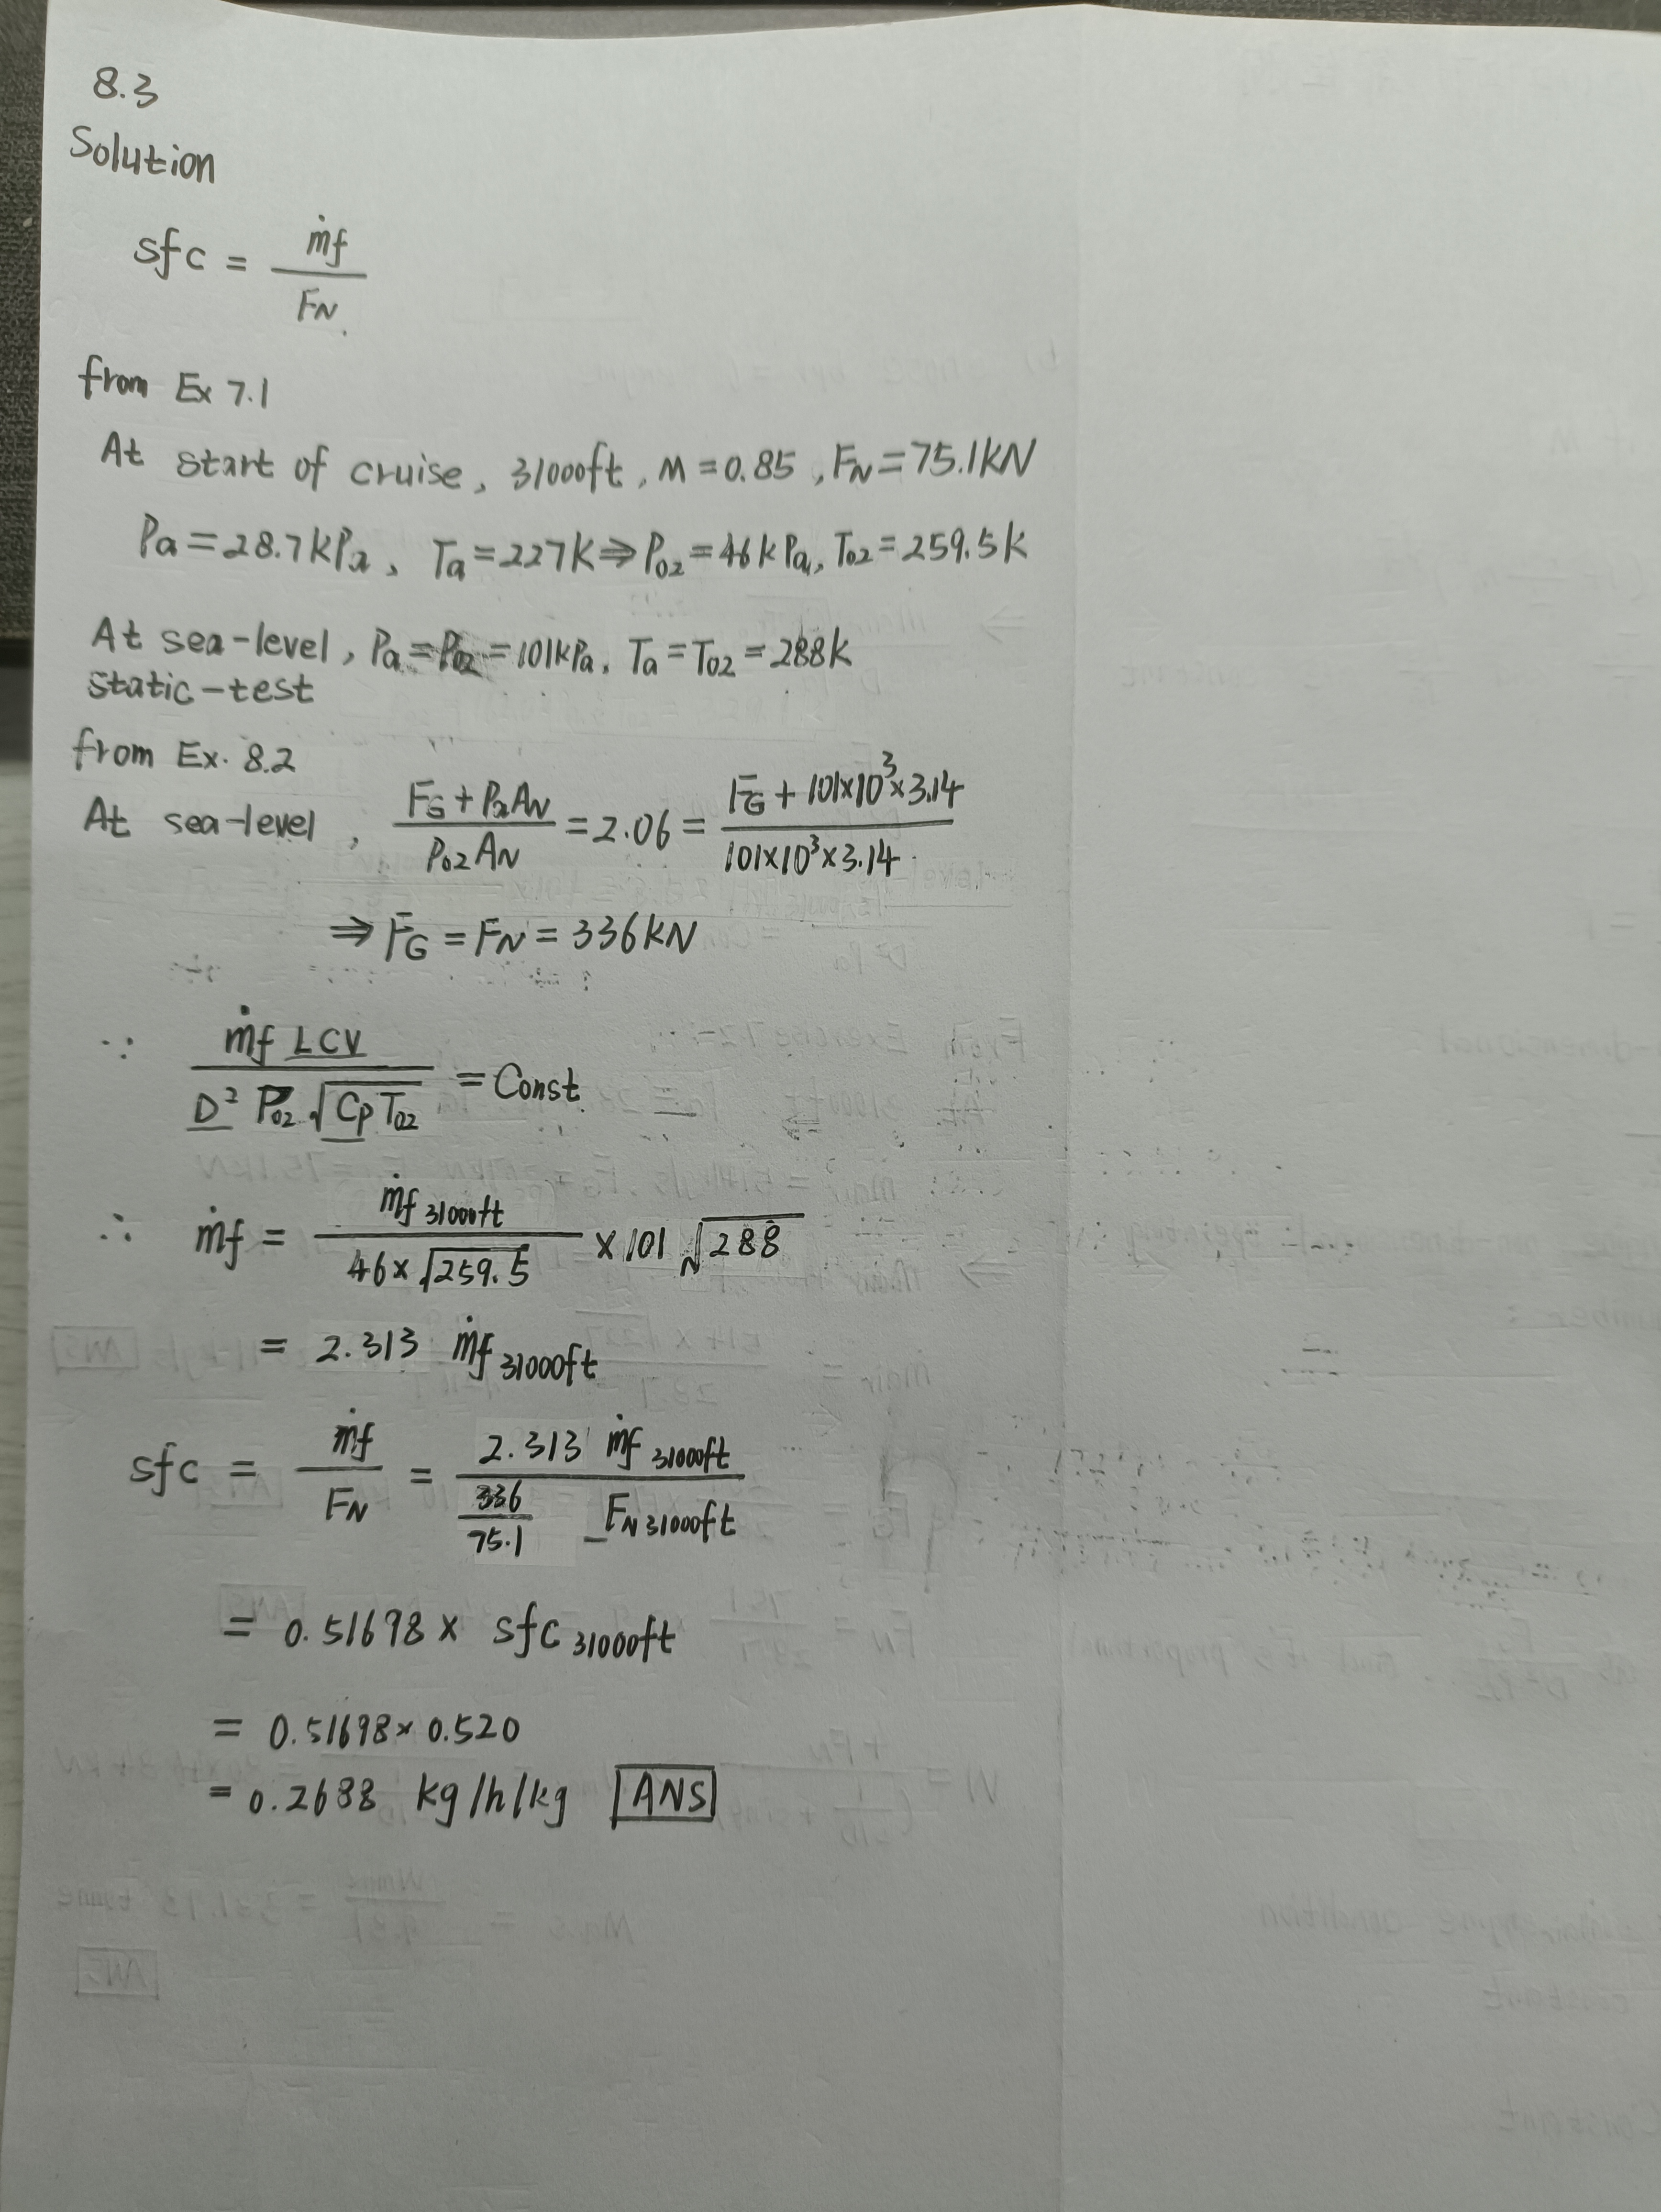 8.3
Solution
sfc = ṁf / FN
from Ex 7.1
At start of cruise, 31000ft, M = 0.85, FN = 75.1kN
Pa = 28.7kPa, Ta = 227K ⇒ P02 = 46kPa, T02 = 259.5k
At sea-level, Pa = P02 = 101kPa, Ta = T02 = 288k
static-test
from Ex. 8.2
At sea-level, (FG + PaAN) / (P02 AN) = 2.06 = (FG + 101×10³×3.14) / (101×10³×3.14)
⇒ FG = FN = 336kN
∵ ṁf LCV / (D² P02 √(Cp T02)) = Const
∴ ṁf = ṁf 31000ft / (46×√259.5) × 101 √288
= 2.313 ṁf 31000ft
sfc = ṁf / FN = 2.313 ṁf 31000ft / (336/75.1 FN 31000ft)
= 0.51698 × sfc 31000ft
= 0.51698 × 0.520
= 0.2688 kg/h/kg ANS